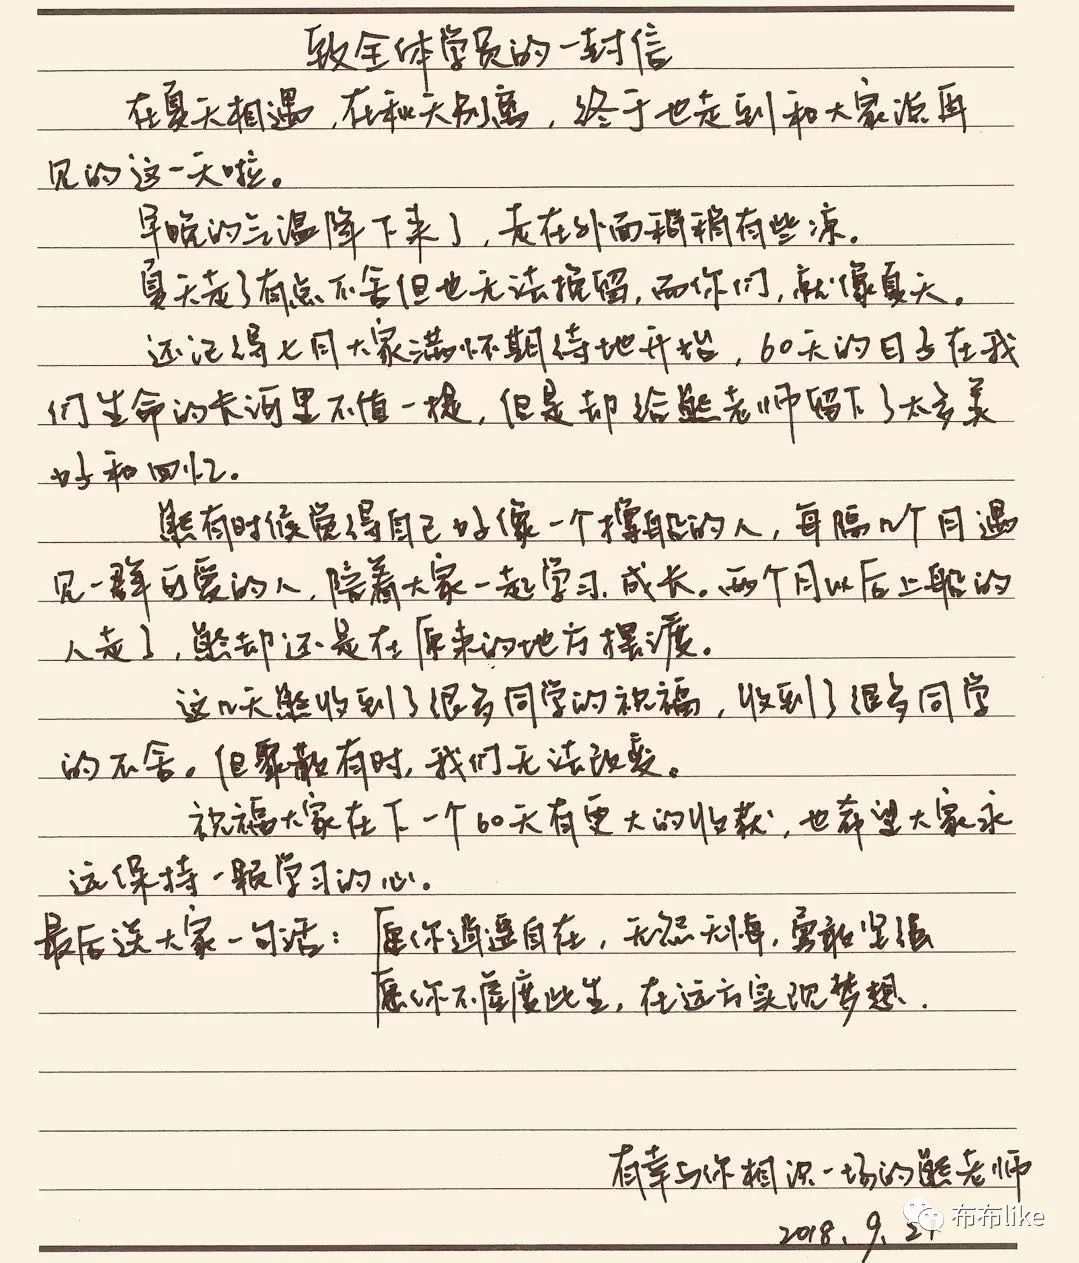 致全体学员的一封信
在夏天相遇，在秋天别离，终于也走到和大家说再
见的这一天啦。
早晚的气温降下来了，走在外面稍稍有些凉。
夏天走了有点不舍但也无法挽留，而你们，就像夏天。
还记得七月大家满怀期待地开始，60天的日子在我
们生命的长河里不值一提，但是却给熊老师留下了太多美
好和回忆。
熊有时候觉得自己好像一个撑船的人，每隔几个月遇
见一群可爱的人，陪着大家一起学习、成长。两个月以后上船的
人走了，熊却还是在原来的地方摆渡。
这几天熊收到了很多同学的祝福，收到了很多同学
的不舍。但聚散有时，我们无法改变。
祝福大家在下一个60天有更大的收获，也希望大家永
远保持一颗学习的心。
最后送大家一句话：愿你逍遥自在，无怨无悔，勇敢坚强
愿你不虚度此生，在远方实现梦想.
有幸与你相识一场的熊老师
2018.9.21
布布like